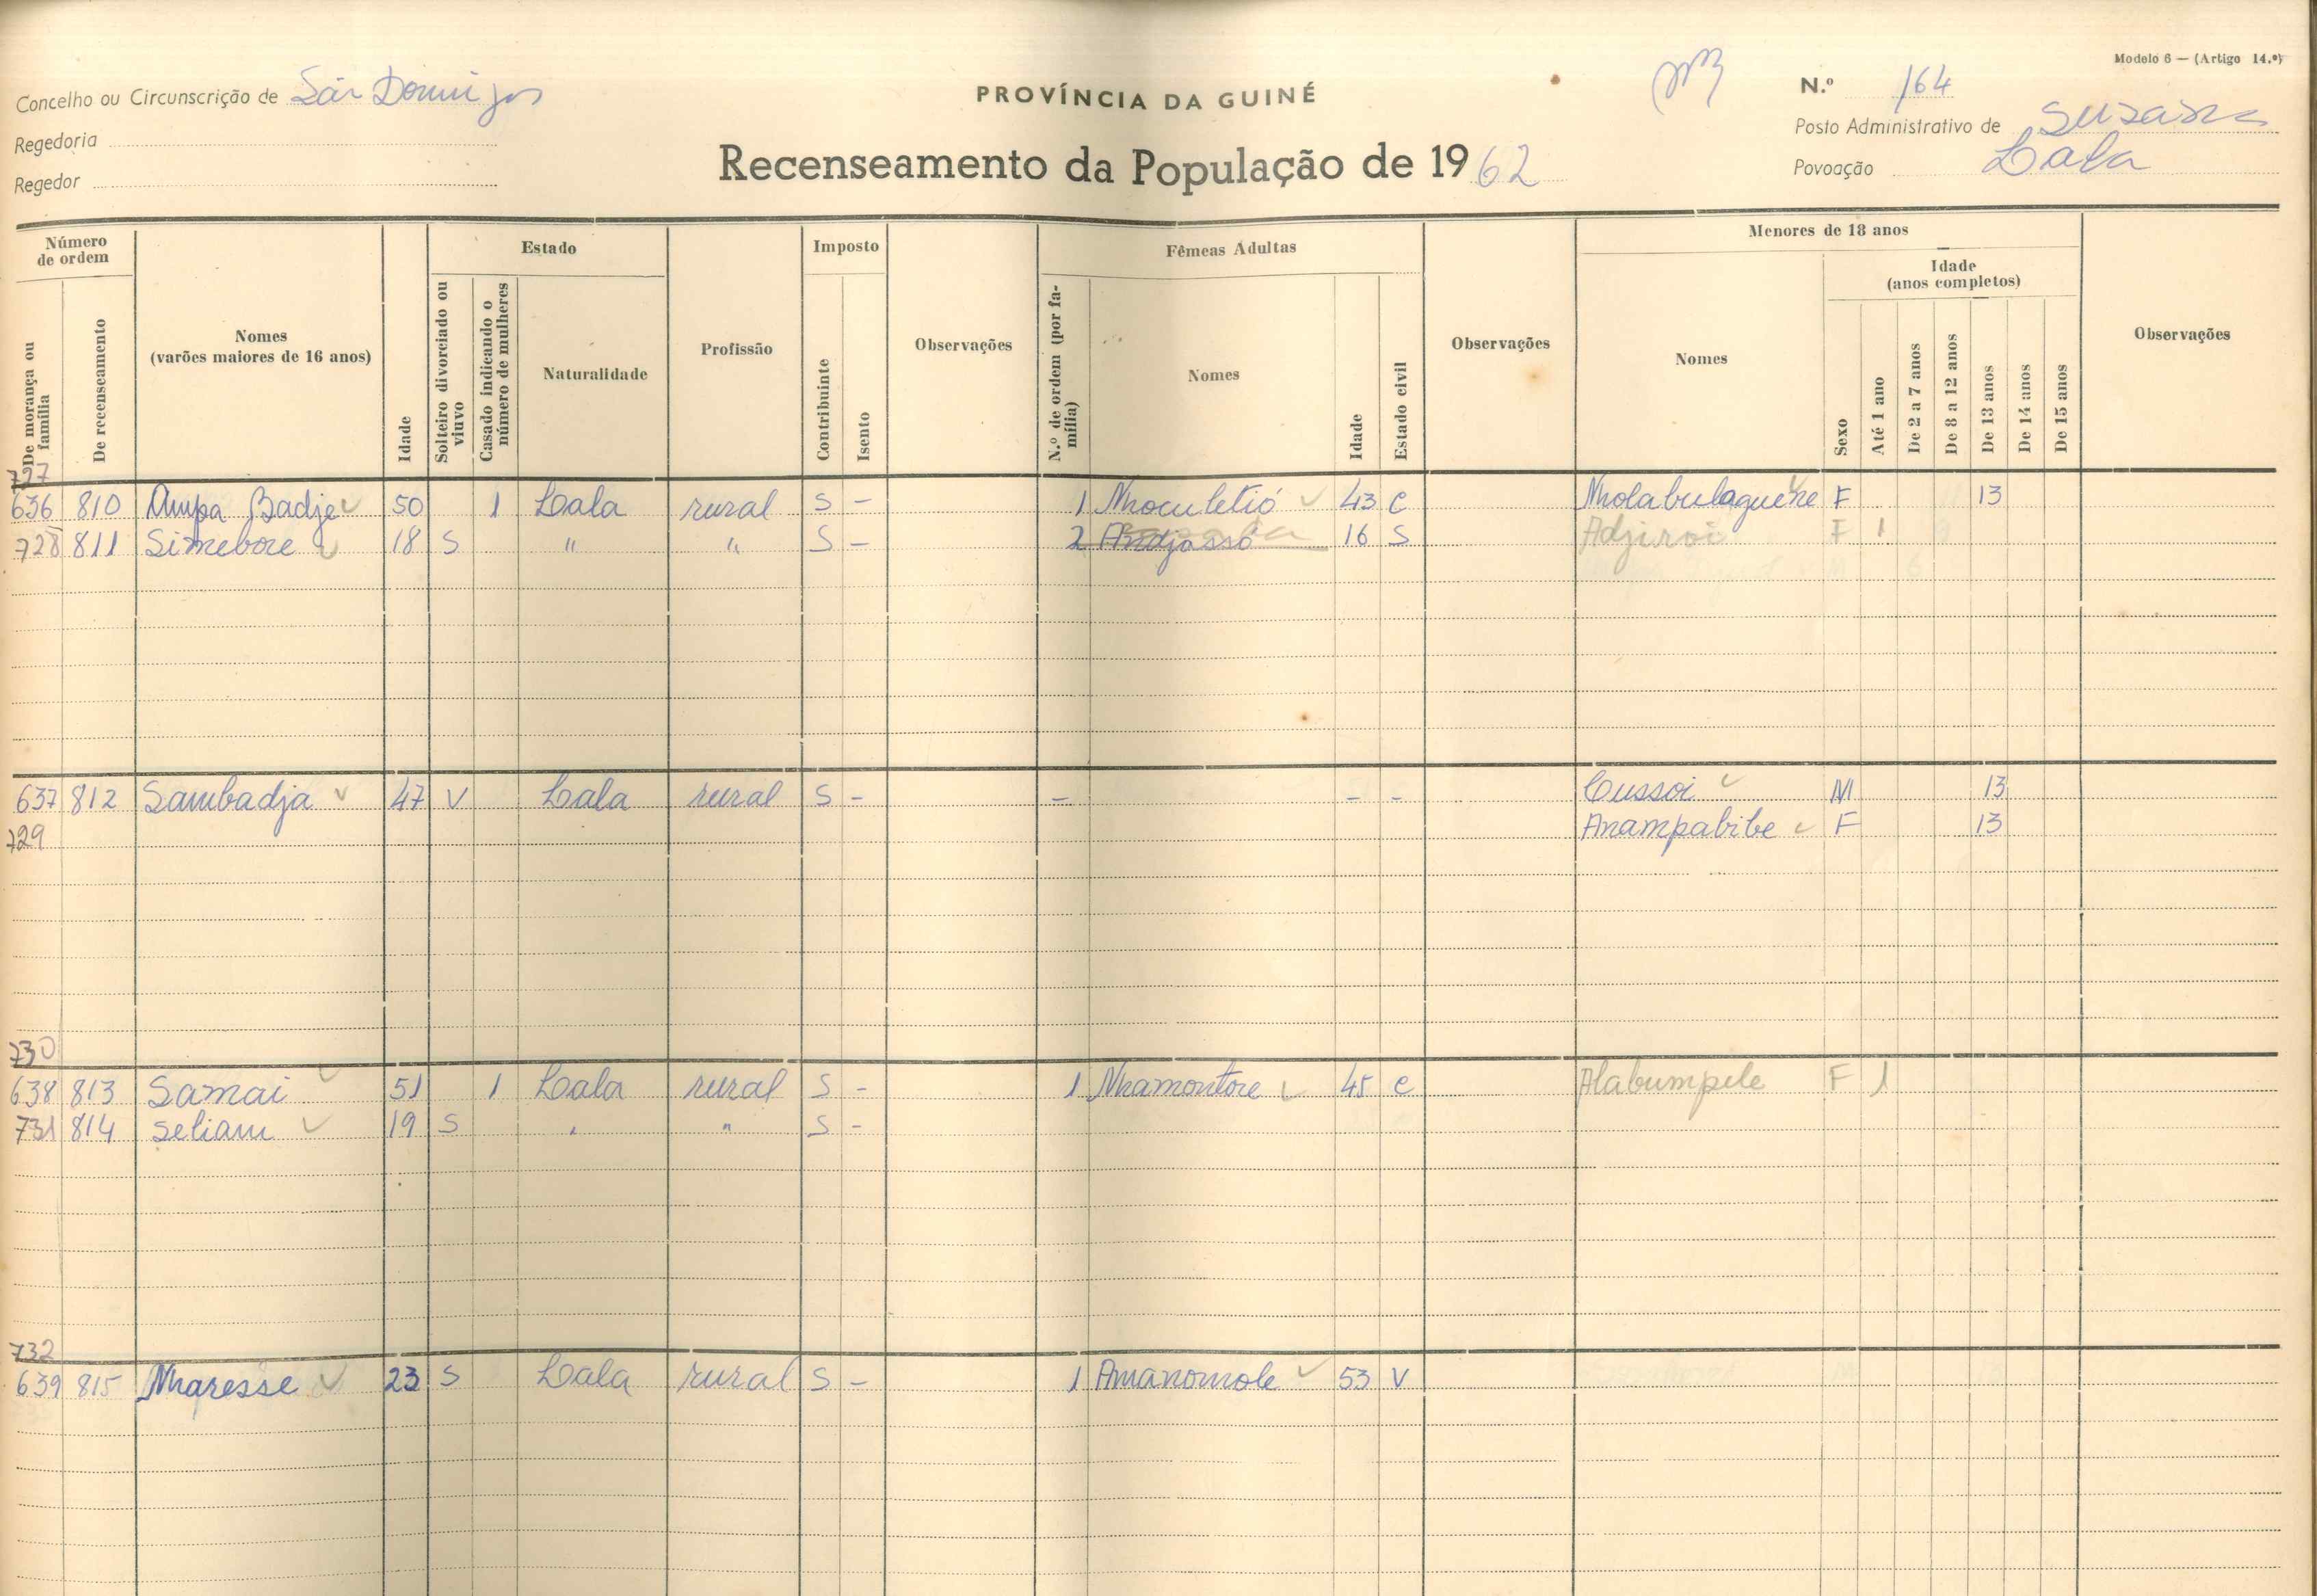 Modelo 6 — (Artigo 14.º)
Concelho ou Circunscrição de São Domingos
PROVÍNCIA DA GUINÉ
N.º 164
Regedoria
Posto Administrativo de Suzana
Regedor
Recenseamento da População de 1962
Povoação Lala
Número de ordem
De morança ou família
De recenseamento
Nomes
(varões maiores de 16 anos)
Idade
Estado
Solteiro divorciado ou viuvo
Casado indicando o número de mulheres
Naturalidade
Profissão
Imposto
Contribuinte
Isento
Observações
Fêmeas Adultas
N.º de ordem (por família)
Nomes
Idade
Estado civil
Observações
Menores de 18 anos
Nomes
Idade
(anos completos)
Sexo
Até 1 ano
De 2 a 7 anos
De 8 a 12 anos
De 13 anos
De 14 anos
De 15 anos
Observações
727
636 810 Ampa Badje 50 1 Lala rural S - 1 Nhoculetió 43 C Nholabulaguene F 13
728 811 Simebore 18 S " " S - 2 Andjassó 16 S Adjiroi F 1
637 812 Sambadja 47 V Lala rural S - - - - Cussoi M 13
729 Anampabibe F 13
730
638 813 Samai 51 1 Lala rural S - 1 Nhamontore 45 C Alabumpele F 1
731 814 Seliam 19 S " " S -
732
639 815 Nharesse 23 S Lala rural S - 1 Amanomole 53 V